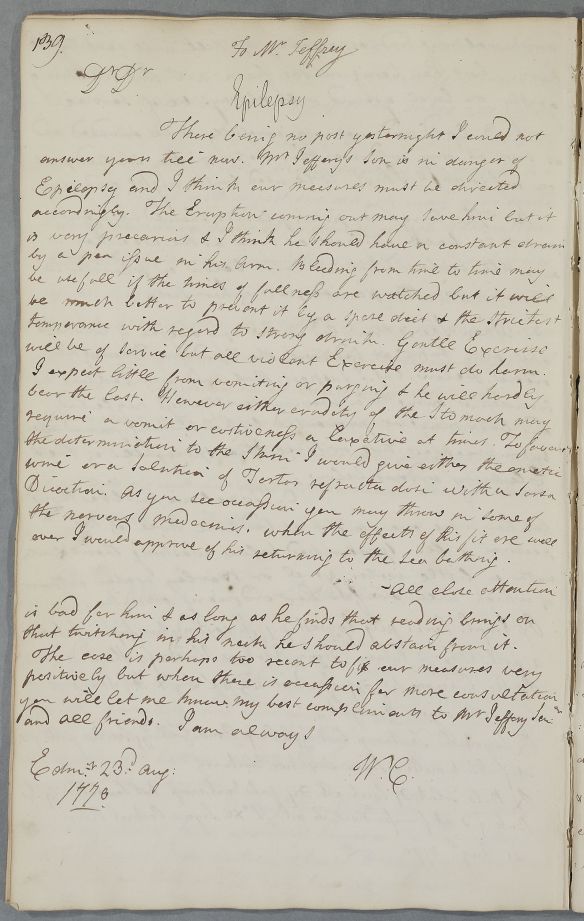 139.
To Mr. Jeffrey
Dr Dr
Epilepsy
There being no post yesternight I could not
answer yours till now. Mr Jefferys Son is in danger of
Epilepsy and I think our measures must be directed
accordingly. The Eruption coming out may save him but it
is very precarious & I think he should have a constant drain
by a pea issue in his arm. Bleeding from time to time may
be usefull if the times of fullness are watched but it will
be much better to prevent it by a spare diet & the strictest
temperance with regard to strong drink. Gentle Exercise
will be of service but all violent Exercise must do harm.
I expect little from vomiting or purging & he will hardly
bear the last. However either crudity of the Stomach may
require a vomit or costiveness a Laxative at times. To favour
the determination to the Skin I would give either the emetic
wine or a Solution of Tartar refracta dosi with a Sarsa
Decoction. As you see occassion you may throw in some of
the nervous medecines. when the effects of this fit are well
over I would approve of his returning to the Sea bathing.
- All close attention
is bad for him & as long as he finds that reading brings on
that twitching in his neck he should abstain from it.
The case is perhaps too recent to fix our measures very
positively but when there is occassion for more consultation
you will let me know my best compliments to Mr Jeffery Senr
and all friends. I am always
Edinr. 23d. Aug:
W.C.